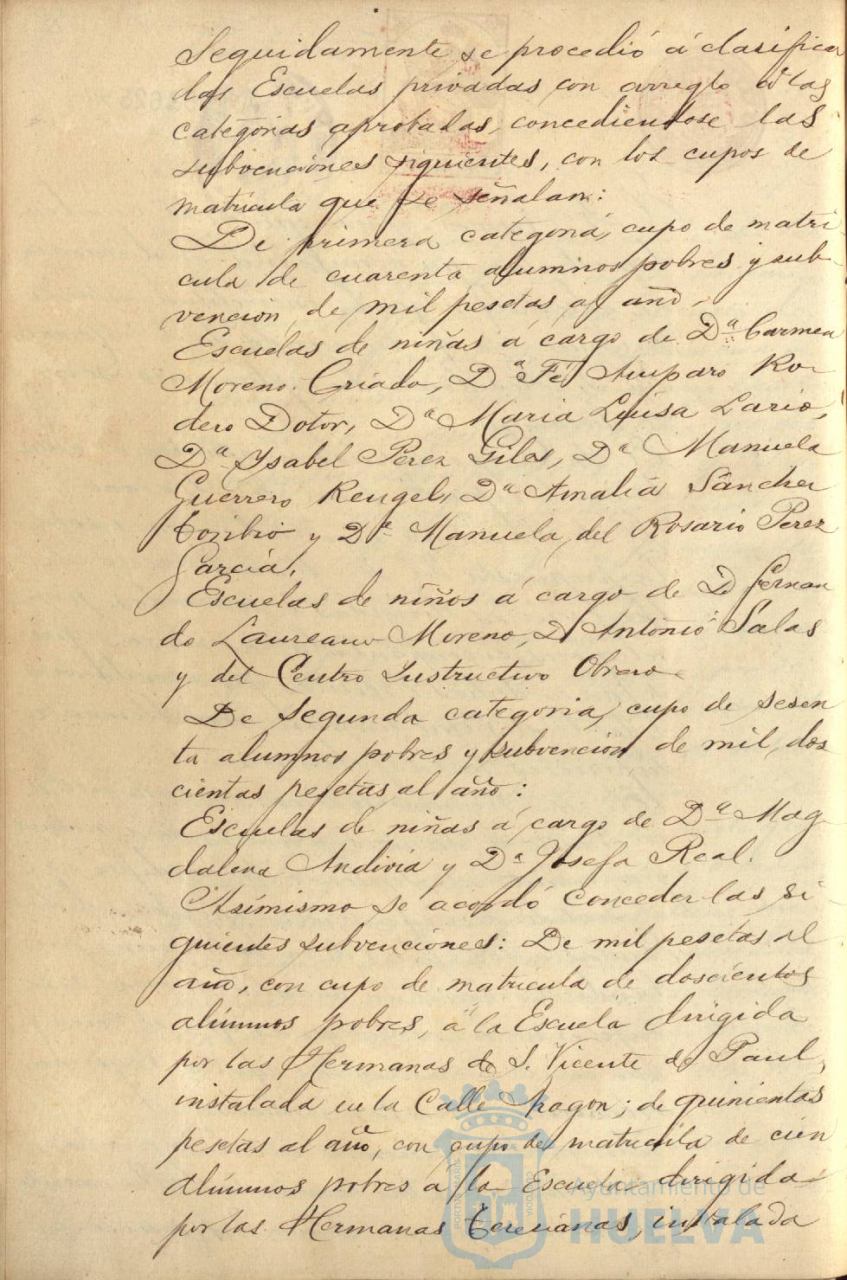 Seguidamente se procedió á clasificar
las Escuelas privadas con arreglo á las
categorias aprobadas, concediendose las
subvenciones siguientes, con los cupos de
matricula que se señalan:
De primera categoria, cupo de matri-
cula de cuarenta alumnos pobres y sub-
vencion de mil pesetas al año.
Escuelas de niñas á cargo de Dª Carmen
Moreno Criado, Dª Fé Amparo Ro-
dero Dotor, Dª Maria Luisa Lario,
Dª Ysabel Perez Giles, Dª Manuela
Guerrero Rengel, Dª Amalia Sánchez
Toribio y Dª Manuela del Rosario Perez
Garcia.
Escuelas de niños á cargo de D Fernan
do Laureano Moreno, D Antonio Salas
y del Centro Instructivo Obrero
De segunda categoria, cupo de sesen
ta alumnos pobres y subvencion de mil dos
cientas pesetas al año:
Escuelas de niñas á cargo de Dª Mag
dalena Andivia y Dª Josefa Real.
Asimismo se acordó conceder las si
guientes subvenciones: De mil pesetas al
año, con cupo de matricula de doscientos
alumnos pobres, á la Escuela dirigida
por las Hermanas de S. Vicente de Paul,
instalada en la Calle Aragon; de quinientas
pesetas al año, con cupo de matricula de cien
alumnos pobres á la Escuela dirigida
por las Hermanas Teresianas, instalada
Ayuntamiento de
HUELVA